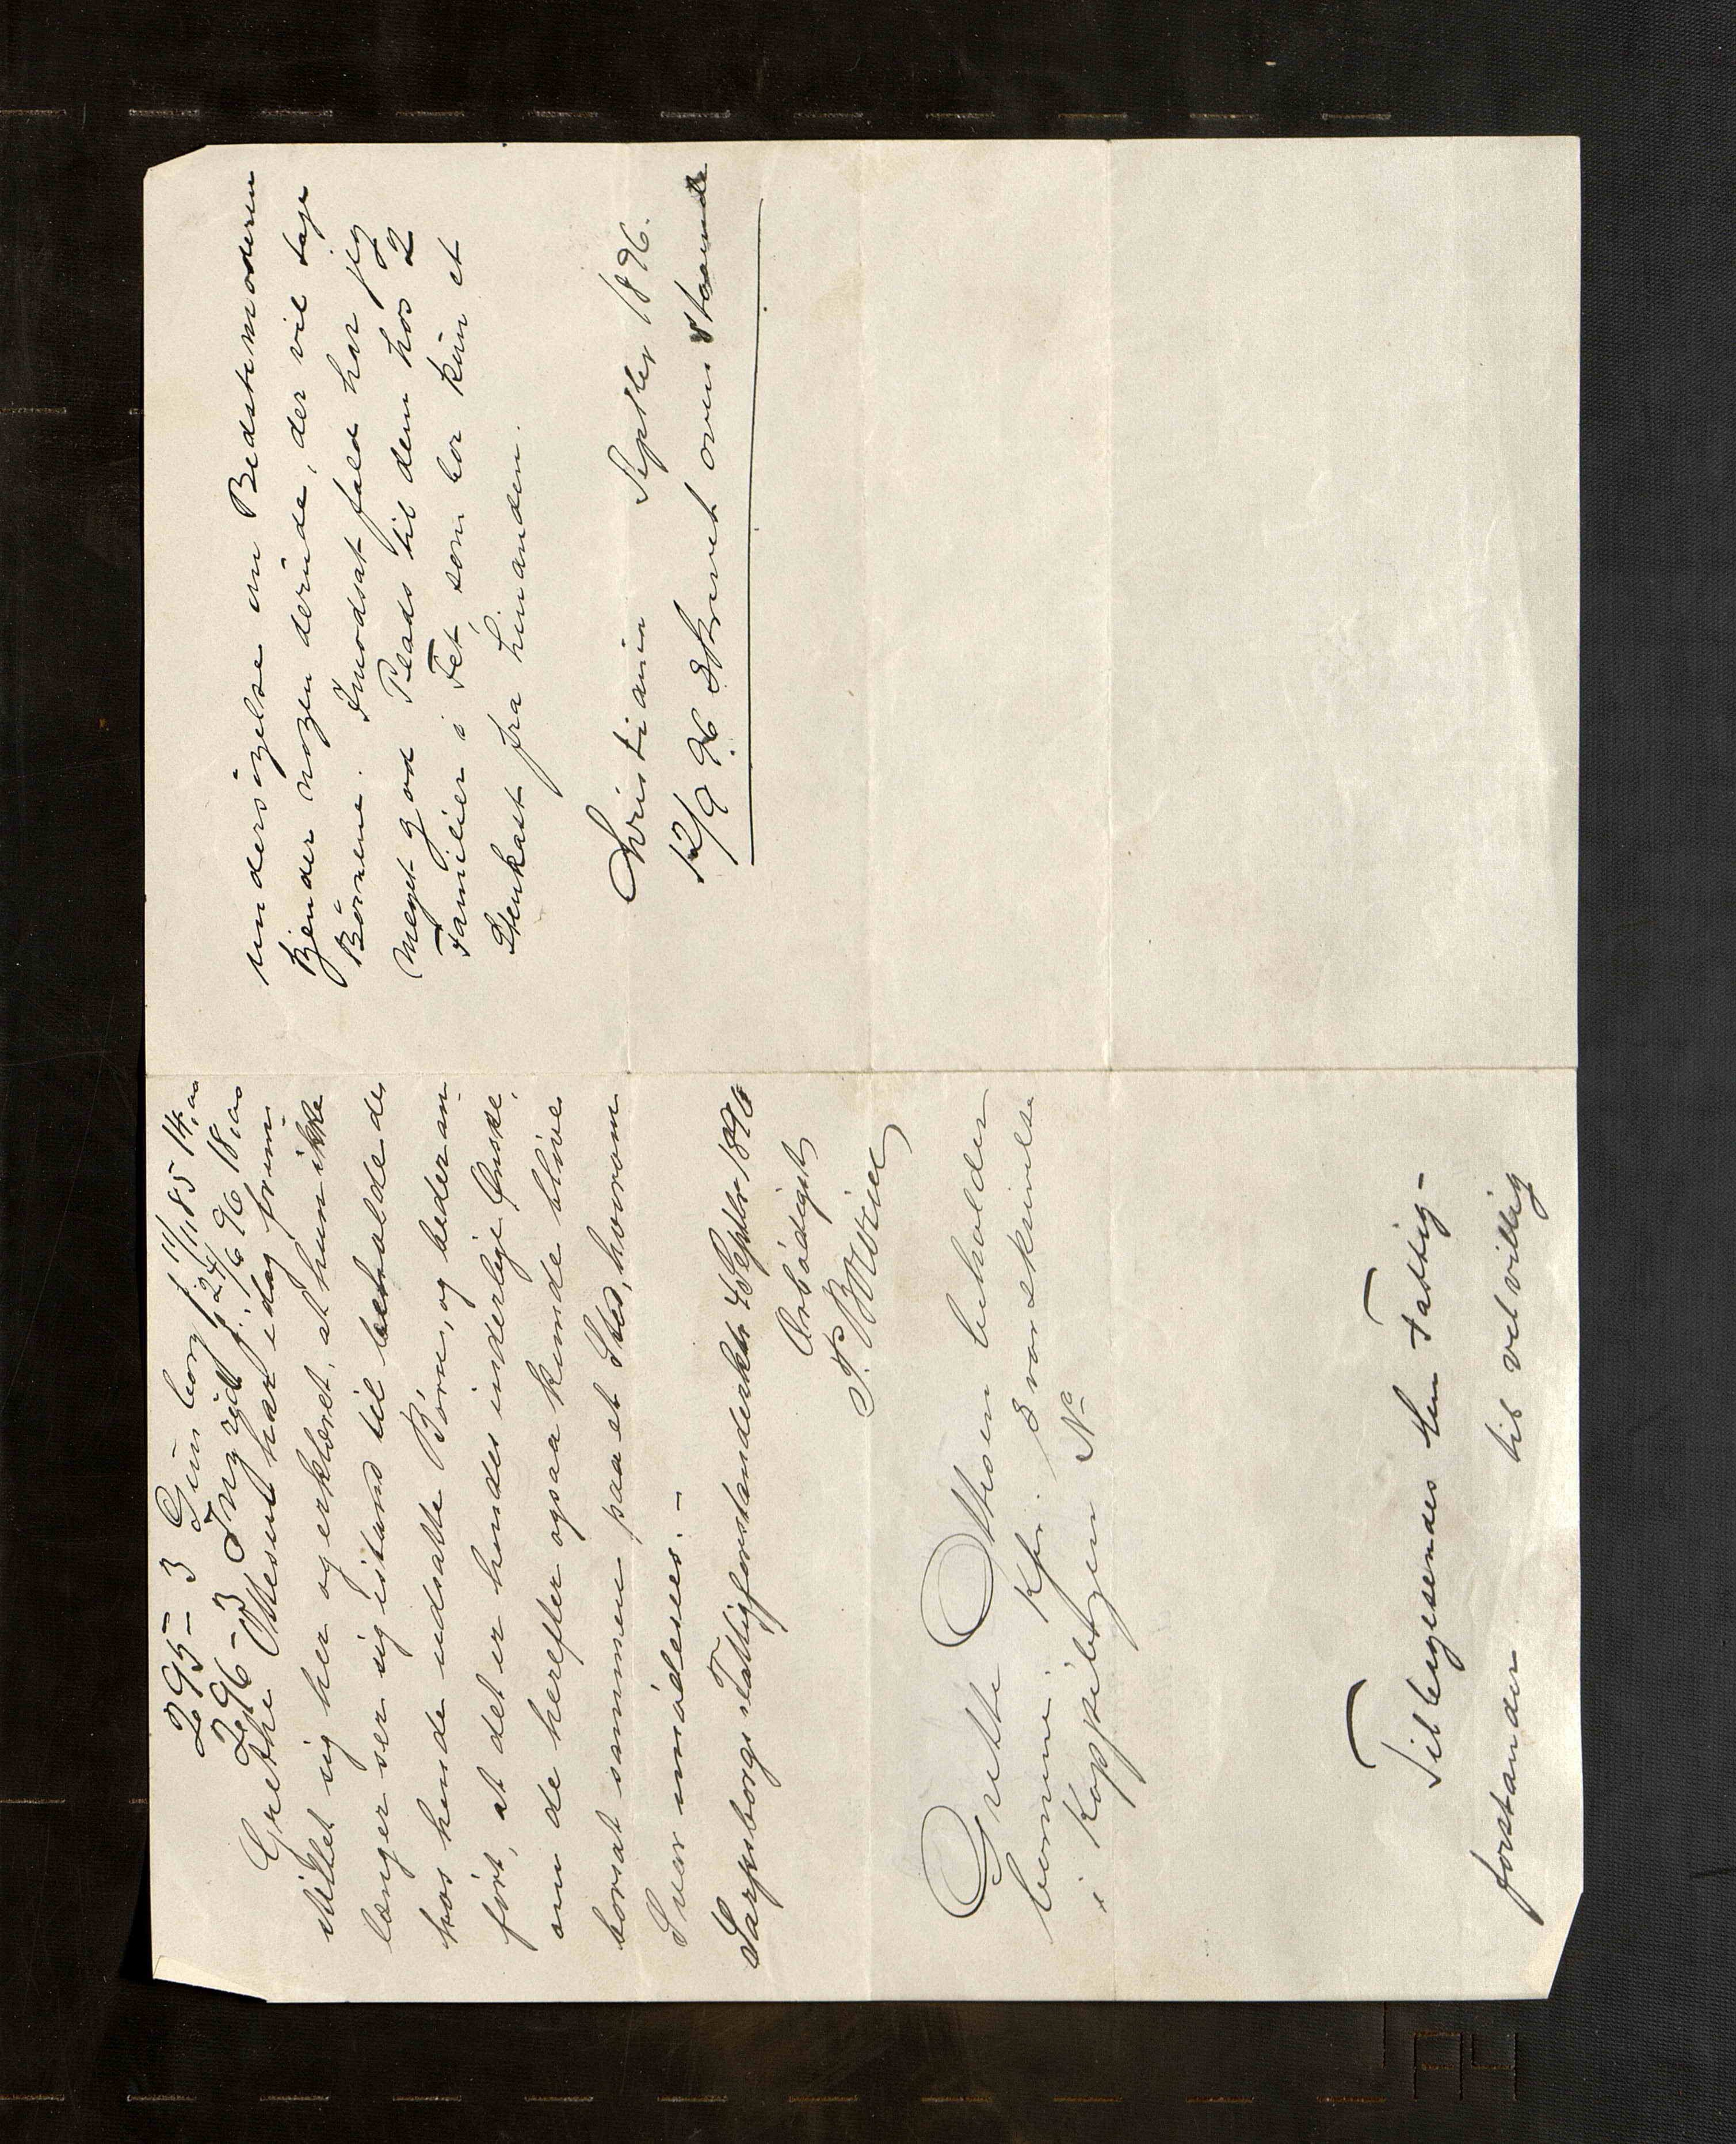 295 – 3 Gunborg f. 11/1 85 14, aa
296 – 3 Ingrid f. 24/6 96 18, aa
Grethe Olesen har i dag frem-
stillet sig her og erklæret, at hun ikke
længer ser sig istand til beholde de
hos hende udsatte Børn, og bedes an-
ført, at det er hendes inderlige Ønske,
om de herefter ogsaa kunde blive
borsat sammen paa et Sted, hvorom
Svar imødesees. –
Sarpsborgs Fattigforstanderkt 4 Septbr 1896
Ærbødigst
Grethe Olsen beholder
børnene. Kfr. Skrivelse
i Koppibogen No
Tilbagesendes Hrr Fattig-
forstander til velvillig
undersøgelse om Bedstemoderen
kjender nogen derinde, der vil tage
Børnene. Imodsat fald har jeg
meget god Plads til dem hos 2
Familier i Fet, som bor kun et
Stenkast fra hinanden.
Christiania Septbr 1896.
12/9 96 Skrevet ovenstaaende